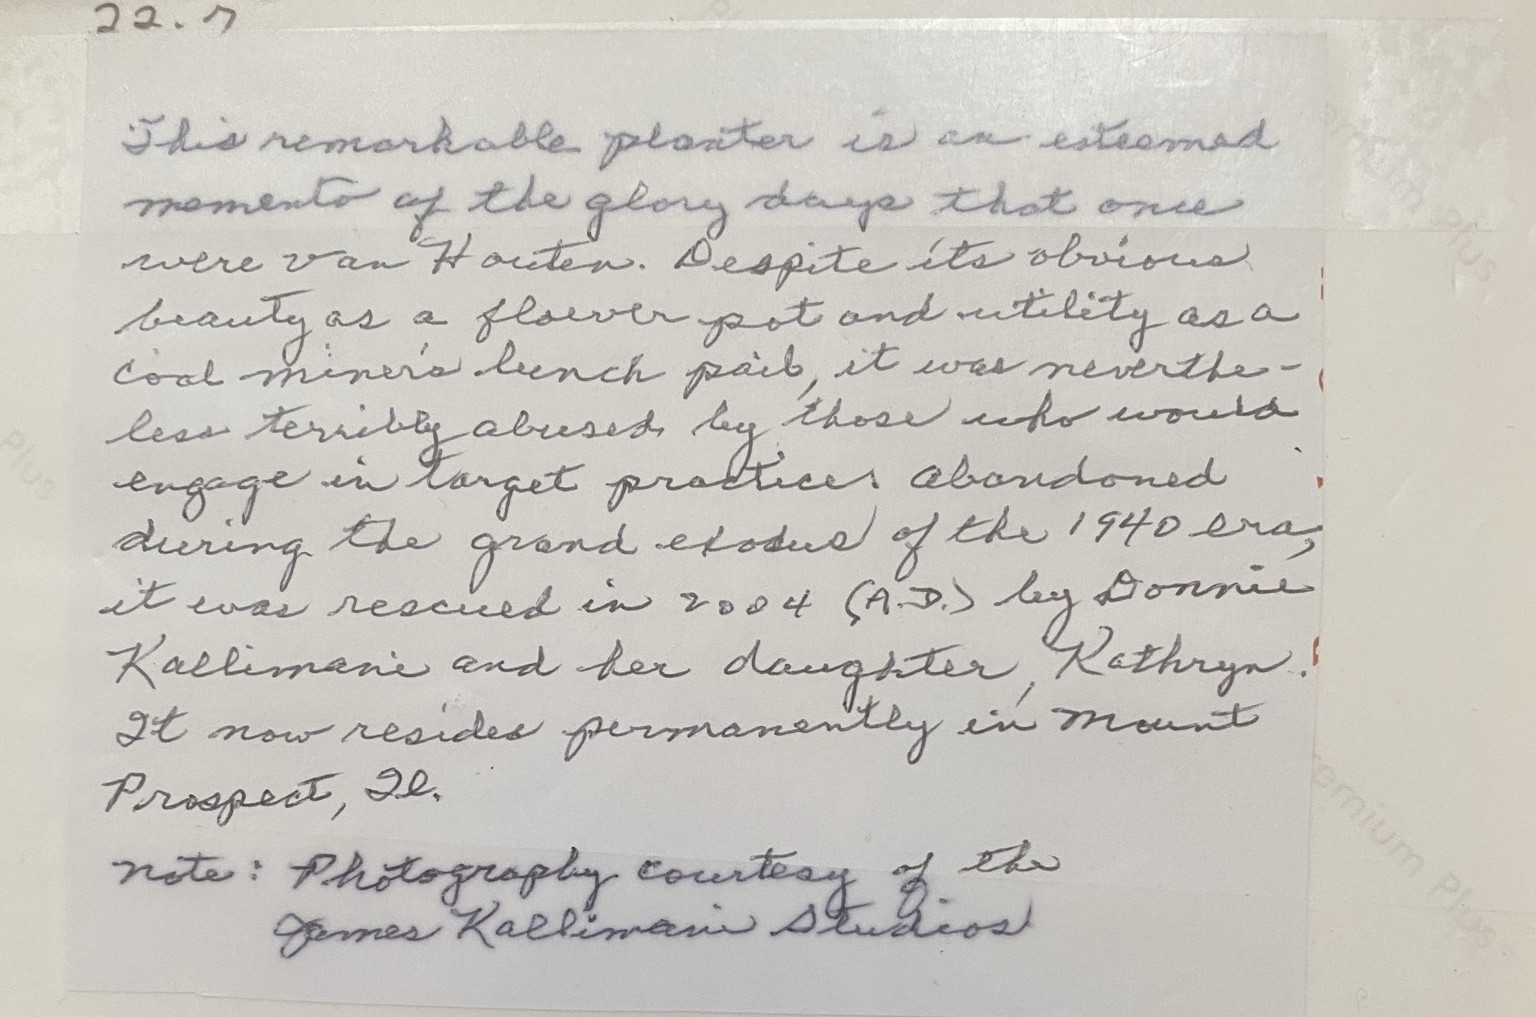 22.7
This remarkable planter is an esteemed
memento of the glory days that once
were Van Houten. Despite its obvious
beauty as a flower pot and utility as a
coal miner's lunch pail, it was neverthe-
less terribly abused by those who would
engage in target practice. Abandoned
during the grand exodus of the 1940 era,
it was rescued in 2004 (A.D.) by Donnie
Kallimani and her daughter, Kathryn.
It now resides permanently in Mount
Prospect, Il.
Note: Photography courtesy of the
James Kallimani Studios
Premium Plus
Plus
remium Plus